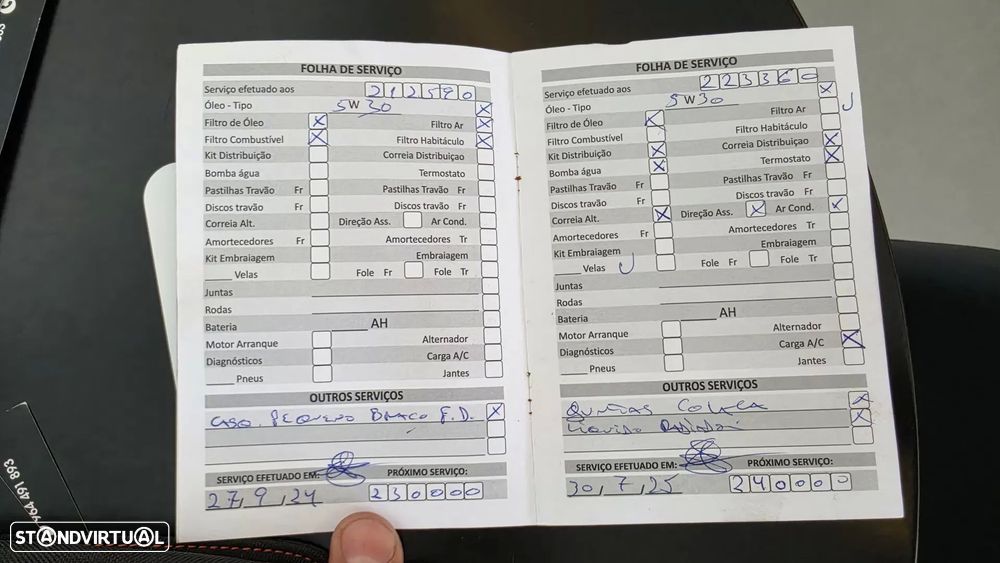 FOLHA DE SERVIÇO
Serviço efetuado aos 212590
Óleo - Tipo 5W30 X
Filtro de Óleo X Filtro Ar X
Filtro Combustível X Filtro Habitáculo X
Kit Distribuição Correia Distribuiçao
Bomba água Termostato
Pastilhas Travão Fr Pastilhas Travão Fr
Discos travão Fr Discos travão Fr
Correia Alt. Direção Ass. Ar Cond.
Amortecedores Fr Amortecedores Tr
Kit Embraiagem Embraiagem
____ Velas Fole Fr Fole Tr
Juntas
Rodas
Bateria ______ AH
Motor Arranque Alternador
Diagnósticos Carga A/C
____ Pneus Jantes
OUTROS SERVIÇOS
PEQUENO X
SERVIÇO EFETUADO EM: PRÓXIMO SERVIÇO:
27,9,24 230000
FOLHA DE SERVIÇO
Serviço efetuado aos 223360
Óleo - Tipo 5W30 X
Filtro de Óleo X Filtro Ar
Filtro Combustível Filtro Habitáculo
Kit Distribuição X Correia Distribuiçao X
Bomba água X Termostato X
Pastilhas Travão Fr Pastilhas Travão Fr
Discos travão Fr Discos travão Fr
Correia Alt. X Direção Ass. X Ar Cond. X
Amortecedores Fr Amortecedores Tr
Kit Embraiagem Embraiagem
____ Velas Fole Fr Fole Tr
Juntas
Rodas
Bateria ______ AH
Motor Arranque Alternador
Diagnósticos Carga A/C X
____ Pneus Jantes
OUTROS SERVIÇOS
X
LIQUIDO X
SERVIÇO EFETUADO EM: PRÓXIMO SERVIÇO:
30,7,25 240000
964 491 893
STANDVIRTUAL